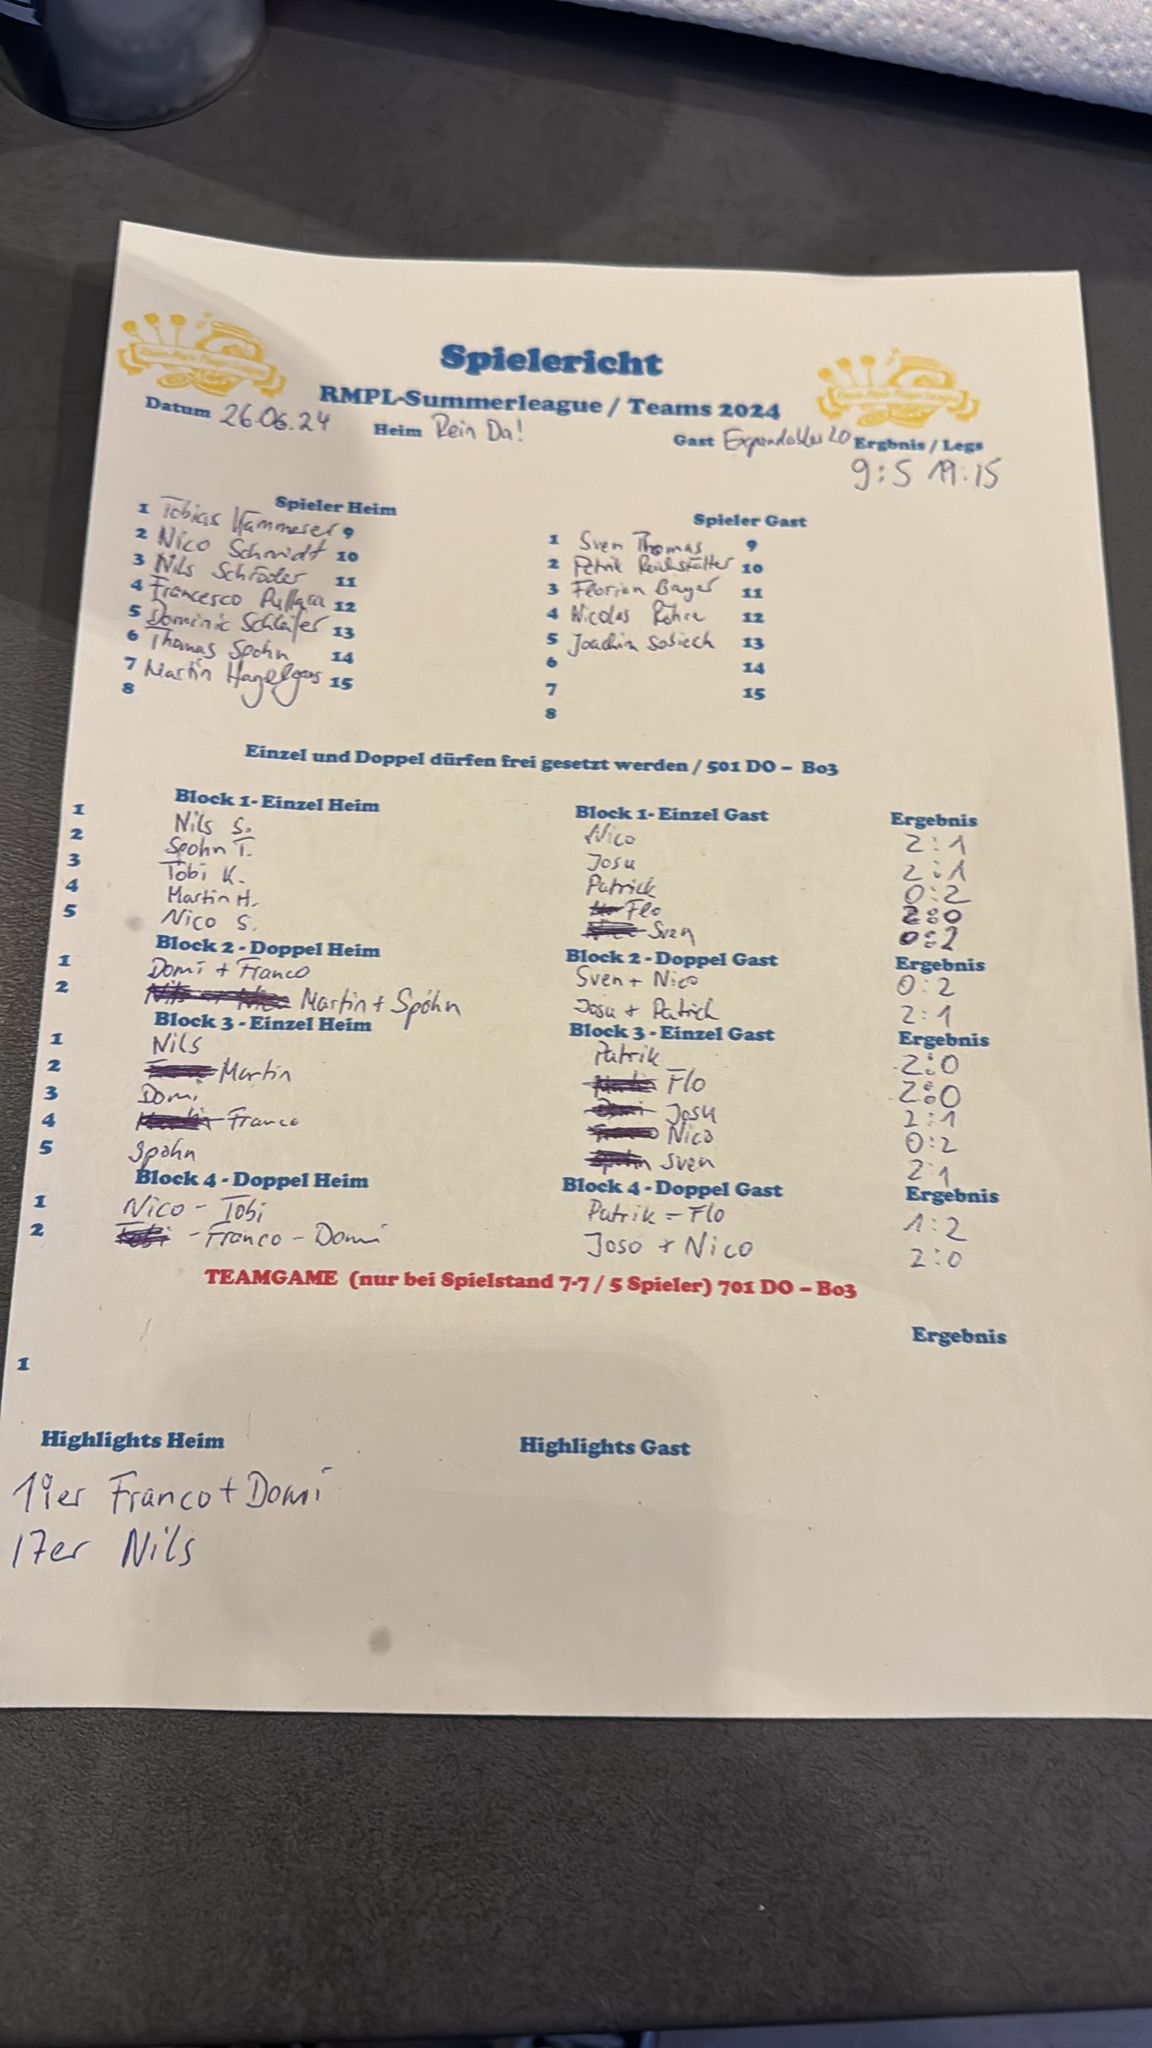 Spielericht
RMPL-Summerleague / Teams 2024
Datum 26.06.24 Heim Rein Da! Gast Expendables 2.0 Ergbnis / Legs
9:5 19:15
Spieler Heim Spieler Gast
1 Tobias 9 1 Sven Thomas 9
2 Nico Schmidt 10 2 Petrik 10
3 Nils Schröder 11 3 Florian Bayer 11
4 Francesco 12 4 Nicolas 12
5 Dominic Schläfer 13 5 Joachim Sobiech 13
6 Thomas Spohn 14 6 14
7 Martin 15 7 15
8 8
Einzel und Doppel dürfen frei gesetzt werden / 501 DO – Bo3
Block 1- Einzel Heim Block 1- Einzel Gast Ergebnis
1 Nils S. Nico 2:1
2 Spohn T. Josu 2:1
3 Tobi K. Patrick 0:2
4 Martin H. Flo 2:0
5 Nico S. Sven 0:2
Block 2 - Doppel Heim Block 2 - Doppel Gast Ergebnis
1 Domi + Franco Sven + Nico 0:2
2 Martin + Spöhn Josu + Patrick 2:1
Block 3 - Einzel Heim Block 3 - Einzel Gast Ergebnis
1 Nils Patrik 2:0
2 Martin Flo 2:0
3 Domi Josu 2:1
4 Franco Nico 0:2
5 Spöhn Sven 2:1
Block 4 - Doppel Heim Block 4 - Doppel Gast Ergebnis
1 Nico - Tobi Patrik - Flo 1:2
2 Tobi - Franco - Domi Joso + Nico 2:0
TEAMGAME (nur bei Spielstand 7-7 / 5 Spieler) 701 DO – Bo3
Ergebnis
1
Highlights Heim Highlights Gast
19er Franco + Domi
17er Nils